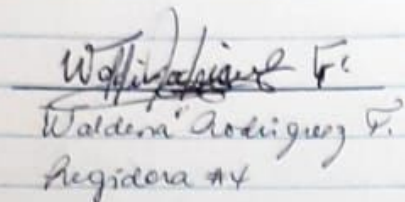 Waldina Rodriguez F.
Regidora #4